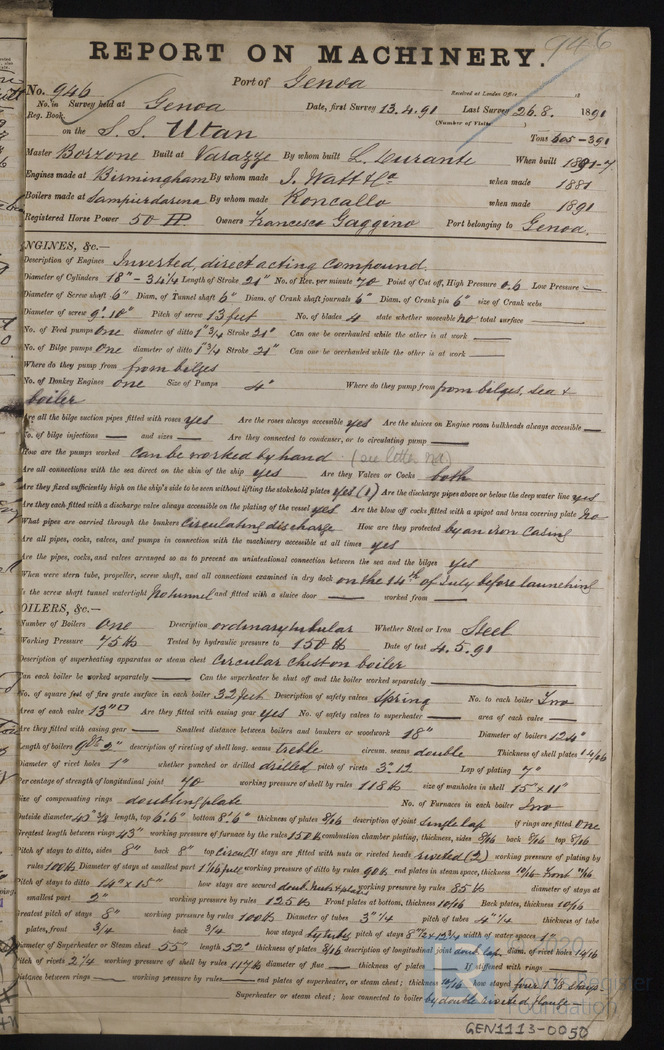 946
REPORT ON MACHINERY.
Port of Genoa
No. 946 Received at London Office 18
No. in Survey held at Genoa Date, first Survey 13.4.91 Last Survey 26.8. 1891
Reg. Book. (Number of Visits
on the S.S. Utan Tons 605-391
Master Borzone Built at Varazze By whom built L. Durante When built 1891-7
Engines made at Birmingham By whom made J. Watt & Co when made 1881
Boilers made at Sampierdarena By whom made Roncallo when made 1891
Registered Horse Power 50 HP Owners Francesco Gaggino Port belonging to Genoa.
NGINES, &c.—
Description of Engines Inverted, direct acting Compound.
Diameter of Cylinders 18" – 34 1/4 Length of Stroke 21" No. of Rev. per minute 70 Point of Cut off, High Pressure 0.6 Low Pressure —
Diameter of Screw shaft 6" Diam. of Tunnel shaft 6" Diam. of Crank shaft journals 6" Diam. of Crank pin 6" size of Crank webs
Diameter of screw 9'.10" Pitch of screw 13 feet No. of blades 4 state whether moveable no total surface —
No. of Feed pumps one diameter of ditto 1" 3/4 Stroke 21" Can one be overhauled while the other is at work —
No. of Bilge pumps one diameter of ditto 1" 3/4 Stroke 21" Can one be overhauled while the other is at work —
Where do they pump from from bilges
No. of Donkey Engines one Size of Pumps 4" Where do they pump from from bilges, sea &
boiler
Are all the bilge suction pipes fitted with roses yes Are the roses always accessible yes Are the sluices on Engine room bulkheads always accessible —
No. of bilge injections — and sizes — Are they connected to condenser, or to circulating pump —
How are the pumps worked Can be worked by hand (see letter
Are all connections with the sea direct on the skin of the ship yes Are they Valves or Cocks both
Are they fixed sufficiently high on the ship's side to be seen without lifting the stokehold plates yes (1) Are the discharge pipes above or below the deep water line yes
Are they each fitted with a discharge valve always accessible on the plating of the vessel yes Are the blow off cocks fitted with a spigot and brass covering plate no
What pipes are carried through the bunkers Circulating discharge How are they protected by an iron casing
Are all pipes, cocks, valves, and pumps in connection with the machinery accessible at all times yes
Are the pipes, cocks, and valves arranged so as to prevent an unintentional connection between the sea and the bilges yes
When were stern tube, propeller, screw shaft, and all connections examined in dry dock on the 14th of July before launching
Is the screw shaft tunnel watertight No tunnel and fitted with a sluice door — worked from —
OILERS, &c.—
Number of Boilers one Description ordinary tubular Whether Steel or Iron Steel
Working Pressure 75 lb Tested by hydraulic pressure to 150 lb Date of test 4.5.91
Description of superheating apparatus or steam chest Circular chest on boiler
Can each boiler be worked separately — Can the superheater be shut off and the boiler worked separately —
No. of square feet of fire grate surface in each boiler 32 feet Description of safety valves Spring No. to each boiler Two
Area of each valve 13"□ Are they fitted with easing gear yes No. of safety valves to superheater — area of each valve —
Are they fitted with easing gear — Smallest distance between boilers and bunkers or woodwork 18" Diameter of boilers 124"
Length of boilers 9ft 2" description of riveting of shell long. seams treble circum. seams double Thickness of shell plates 14/16
Diameter of rivet holes 1" whether punched or drilled drilled pitch of rivets 3.12 Lap of plating 7"
Percentage of strength of longitudinal joint 70 working pressure of shell by rules 118 lb size of manholes in shell 15" x 11"
Size of compensating rings doubling plate No. of Furnaces in each boiler Two
Outside diameter 43" 3/4 length, top 6'.6" bottom 8'.6" thickness of plates 8/16 description of joint Single lap if rings are fitted one
Greatest length between rings 43" working pressure of furnace by the rules 150 lb combustion chamber plating, thickness, sides 8/16 back 8/16 top 8/16
Pitch of stays to ditto, sides 8" back 8" top Circul If stays are fitted with nuts or riveted heads riveted (2) working pressure of plating by
rules 100 lb Diameter of stays at smallest part 1 1/16 full working pressure of ditto by rules 90 lb end plates in steam space, thickness
Pitch of stays to ditto 14" x 15" how stays are secured doub. nuts & plates working pressure by rules 85 lb diameter of stays at
smallest part 2" working pressure by rules 125 lb Front plates at bottom, thickness 10/16 Back plates, thickness 10/16
Greatest pitch of stays 8" working pressure by rules 100 lb Diameter of tubes 3" 1/4 pitch of tubes 4" 1/4 thickness of tube
plates, front 3/4 back 3/4 how stayed by tubes pitch of stays 8 1/2 x 12 3/4 width of water spaces 1"
Diameter of Superheater or Steam chest 55" length 52" thickness of plates 8/16 description of longitudinal joint doub. lap diam. of rivet holes 14/16
Pitch of rivets 2 3/4 working pressure of shell by rules 117 lb diameter of flue — thickness of plates — If stiffened with rings —
distance between rings — working pressure by rules — end plates of superheater, or steam chest; thickness 10/16 how stayed four 1 7/8 stays
Superheater or steam chest; how connected to boiler by double riveted flange
© 2020
Lloyd's Register
Foundation
GEN1113-0050